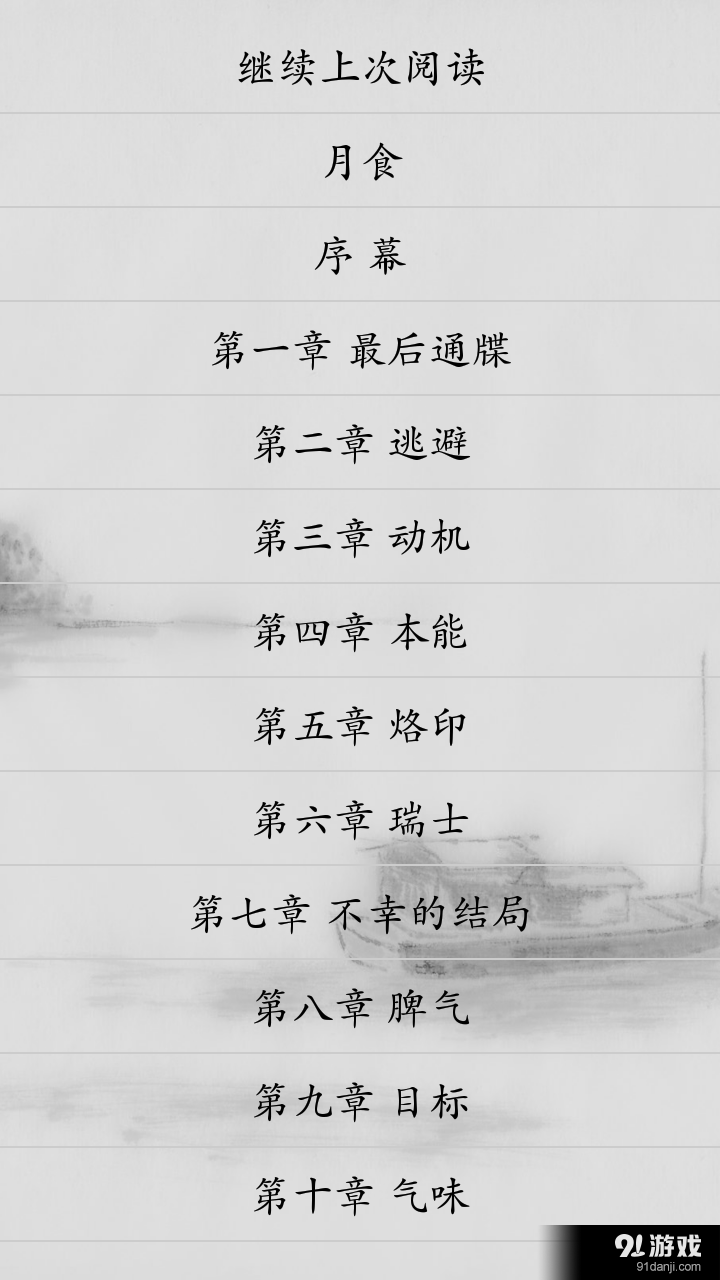 继续上次阅读
月食
序 幕
第一章 最后通牒
第二章 逃避
第三章 动机
第四章 本能
第五章 烙印
第六章 瑞士
第七章 不幸的结局
第八章 脾气
第九章 目标
第十章 气味
91游戏
91danji.com